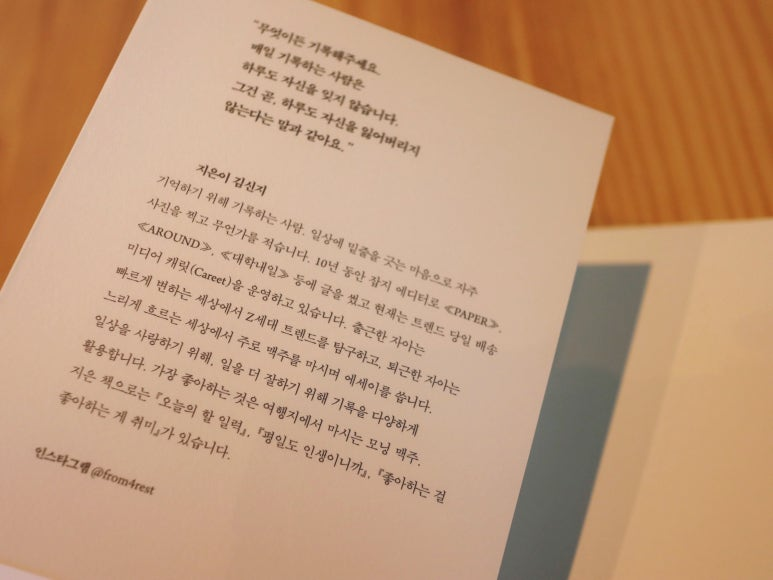 "무엇이든 기록해주세요.
매일 기록하는 사람은
하루도 자신을 잊지 않습니다.
그건 곧, 하루도 자신을 잃어버리지
않는다는 말과 같아요."
지은이 김신지
기억하기 위해 기록하는 사람. 일상에 밑줄을 긋는 마음으로 자주
사진을 찍고 무언가를 적습니다. 10년 동안 잡지 에디터로 ≪PAPER≫,
≪AROUND≫, ≪대학내일≫ 등에 글을 썼고 현재는 트렌드 당일 배송
미디어 캐릿(Careet)을 운영하고 있습니다. 출근한 자아는
빠르게 변하는 세상에서 Z세대 트렌드를 탐구하고, 퇴근한 자아는
느리게 흐르는 세상에서 주로 맥주를 마시며 에세이를 씁니다.
일상을 사랑하기 위해, 일을 더 잘하기 위해 기록을 다양하게
활용합니다. 가장 좋아하는 것은 여행지에서 마시는 모닝 맥주.
지은 책으로는 『오늘의 할 일력』, 『평일도 인생이니까』, 『좋아하는 걸
좋아하는 게 취미』가 있습니다.
인스타그램 @from4rest